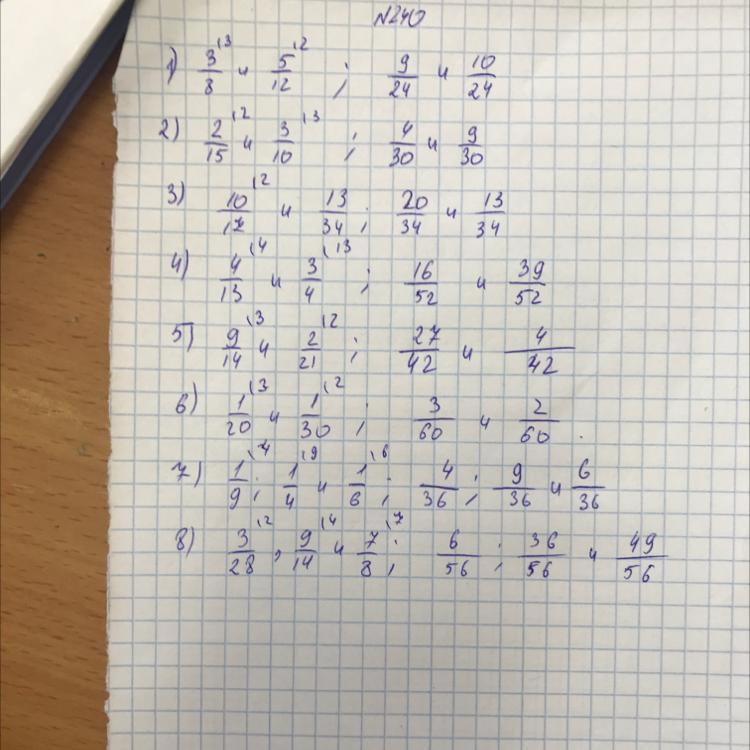 N240
1) 3/8 \3 и 5/12 \2 ; 9/24 и 10/24
2) 2/15 \2 и 3/10 \3 ; 4/30 и 9/30
3) 10/17 \2 и 13/34 ; 20/34 и 13/34
4) 4/13 \4 и 3/4 \13 ; 16/52 и 39/52
5) 9/14 \3 и 2/21 \2 ; 27/42 и 4/42
6) 1/20 \3 и 1/30 \2 ; 3/60 и 2/60 .
7) 1/9 \4 ; 1/4 \9 и 1/6 \6 ; 4/36 ; 9/36 и 6/36
8) 3/28 \2 , 9/14 \4 и 7/8 \7 ; 6/56 ; 36/56 и 49/56